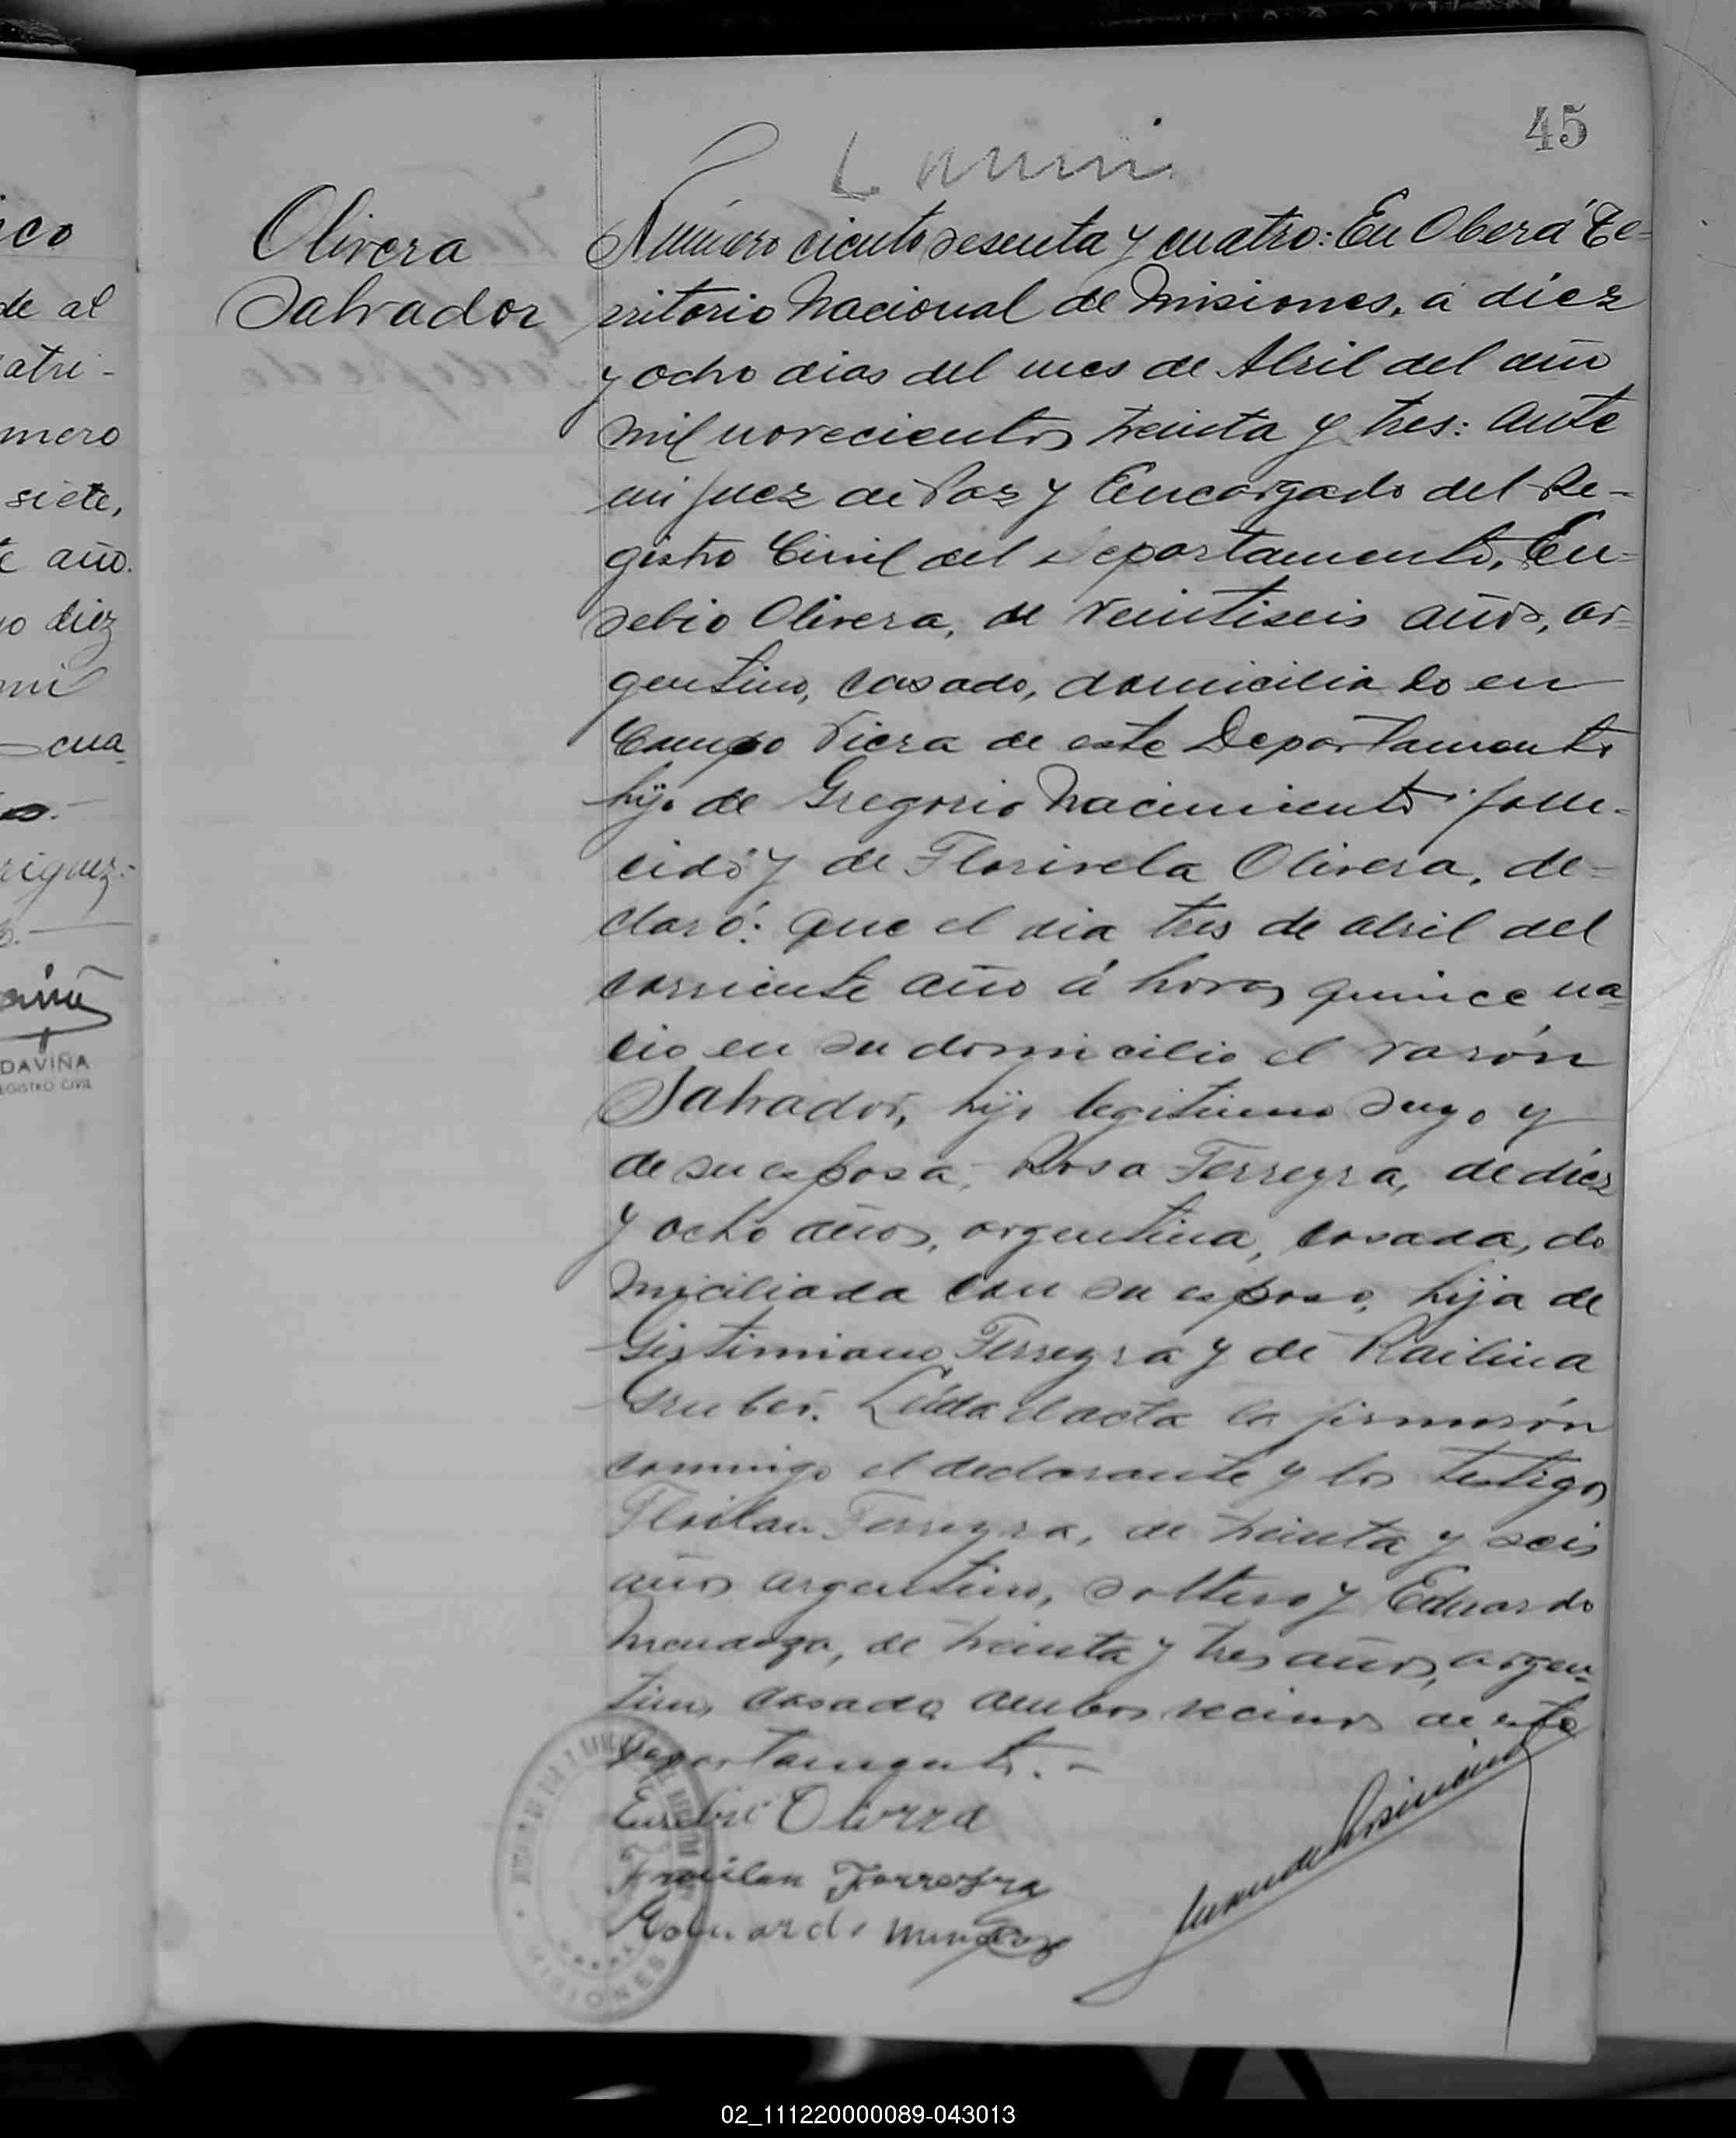 45
Olivera
Salvador
Número ciento sesenta y cuatro: En Oberá Te-
rritorio Nacional de Misiones, á diez
y ocho dias del mes de Abril del año
mil novecientos treinta y tres: ante
mi Juez de Paz y Encargado del Re-
gistro Civil del Departamento, Eu-
sebio Olivera, de veintiseis años, ar-
gentino, casado, domiciliado en
Campo Viera de este Departamento
hijo de Gregorio Nacimiento falle-
cido y de Florivela Olivera, de-
claró: que el dia tres de abril del
corriente año á horas quince na-
cio en su domicilio el varón
Salvador, hijo legitimo suyo y
de su esposa, Rosa Ferreyra, de diez
y ocho años, argentina, casada, do
miciliada con su esposo, hija de
Ferreyra y de Railina
Gruber. Leída el acta la firmarón
conmigo el declarante y los testigos
Floilan Ferreyra, de treinta y seis
años argentino, soltero y Eduardo
Mendoza, de treinta y tres años, argen-
tino, casado ambos vecinos de este
Departamento.-
Eusebio Olivera
Froilan Ferreyra
Eduardo Mendoza
MISIONES
ico
de al
atri-
mero
siete,
e año.
o diez
mi
cua
riguez.-
DAVIÑA
REGISTRO CIVIL
02_111220000089-043013